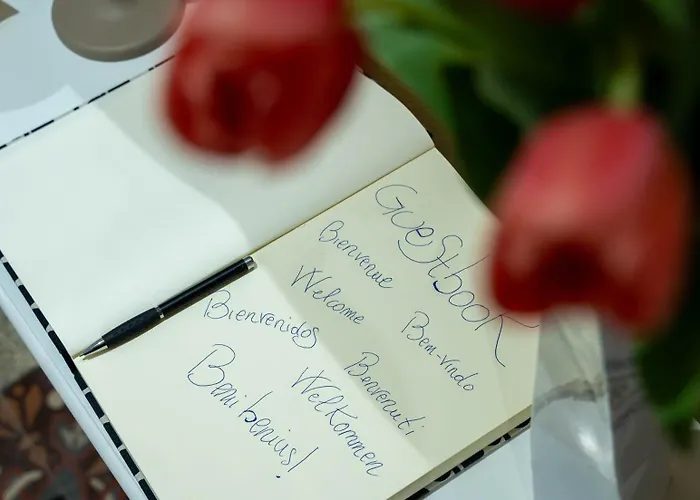 Guestbook
Bienvenue
Welcome Bem-vindo
Bienvenidos Benvenuti
Welkommen
Beni benius!